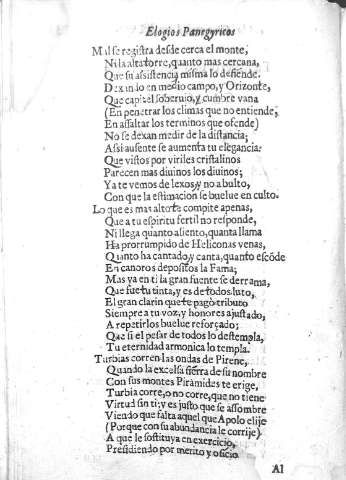 Elogios Panegyricos
Mal se registra desde cerca el monte,
Ni la alta torre, quanto mas cercana,
Que su assistencia misma lo defiende.
Dexando en medio campo, y Orizonte,
Que capitel soberuio, y cumbre vana
(En penetrar los climas que no entiende,
En assaltar los terminos que ofende)
No se dexan medir de la distancia;
Assi ausente se aumenta tu elegancia.
Que vistos por viriles cristalinos
Parecen mas diuinos los diuinos;
Ya te vemos de lexos, y no abulto,
Con que la estimacion se buelue en culto.
Lo que es mas alto te compite apenas,
Que a tu espiritu fertil no responde,
Ni llega quanto aliento, quanta llama
Ha prorrumpido de Heliconas venas,
Quanto ha cantado, y canta, quanto escõde
En canoros depositos la Fama;
Mas ya en ti la gran fuente se derrama,
Que fue tu tinta, y es de todos luto,
El gran clarin que te pagò tributo
Siempre a tu voz, y honores ajustado,
A repetirlos buelue reforçado;
Que si el pesar de todos lo destempla,
Tu eternidad armonica lo templa.
Turbias corren las ondas de Pirene,
Quando la excelsa sierra de su nombre
Con sus montes Piramides te erige,
Turbia corre, o no corre, que no tiene
Virtud sin ti; y es justo que se assombre
Viendo que falta aquel que Apolo elije
(Porque con su abundancia le corrije)
A que le sostituya en exercicio,
Presidiendo por merito y oficio
Al